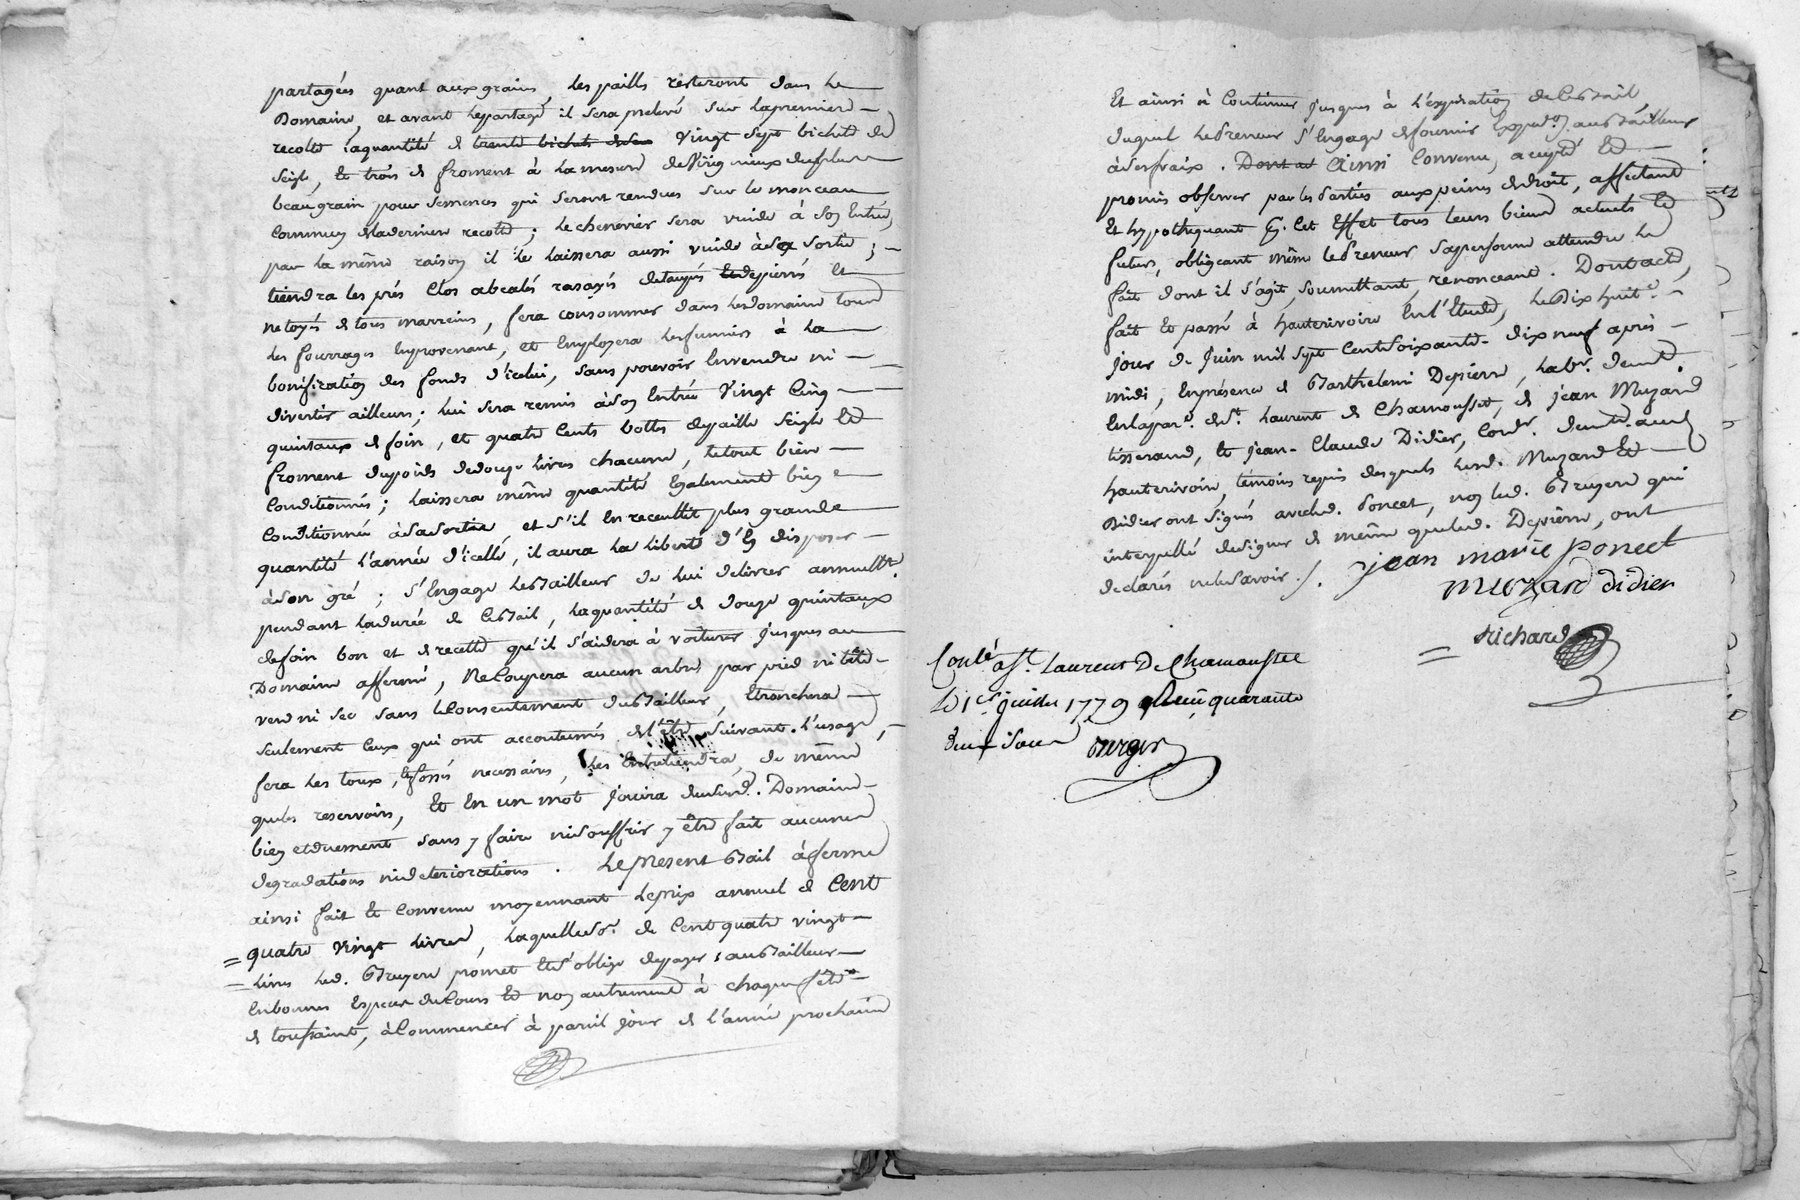 partagées quant aux grains, les pailles resteront dans le
Domaine, et avant le partage il sera prelevé sur la premiere
recolte la quantité de trente bichets de vingt sept bichets de
seigle, et trois de froment à la mesure
beau grain pour semences qui seront rendues sur le monceau
commun de la derniere recolte ; le chenevier sera vuide à son entrée,
par la même raison il le laissera aussi vuide à sa sortie ;
tiendra les prés clos abealés rasayés detaupés et depierrés et
netoyés de tous marreins, fera consommer dans led. domaine tous
les fourrages en provenant, et employera les fumiers à la
bonification des fonds d'icelui, sans pouvoir en vendre ni
divertir ailleurs ; lui sera remis à son entrée vingt cinq
quintaux de foin, et quatre cents bottes de paille seigle et
froment du poids de douze livres chacune, le tout bien
conditionnés ; laissera même quantité egalement bien
conditionnée à sa sortie et s'il en receullit plus grande
quantité l'année d'icelle, il aura la liberté d'en disposer
à son gré ; s'engage le Bailleur de lui delivrer annuellt.
pendant la durée de ce Bail, la quantité de douze quintaux
de foin bon et de recette qu'il s'aidera à voiturer jusques au
Domaine affermé, ne coupera aucun arbre par pied ni tête
verd ni sec sans le consentement du Bailleur, etronchera
seulement ceux qui ont accoutumés de l'être suivant l'usage,
fera les toux, et fossés necessaires, les entretiendra, de même
que les reservoirs, et en un mot jouira dud. Domaine
bien et duement sans y faire ni souffrir y être fait aucunes
degradations ni deteriorations. Le present Bail à ferme
ainsi fait et convenu moyennant le prix annuel de cent
quatre vingt livres, laquelle so. de cent quatre vingt
livres led. Bruyere promet et s'oblige de payer au Bailleur
en bonnes especes du cours et non autrement à chaque fête
de toussaint, à commencer à pareil jour de l'année prochaine
Et ainsi à continuer jusques à l'expiration de ce Bail
duquel le Preneur s'engage de fournir au Bailleur
à ses fraix. Dont act Ainsi convenu, accepté et
promis observer par les Parties aux peines de droit, affectant
et hypothequant p. cet effet tous leurs biens actuels et
futurs, obligeant même le Preneur sa personne attendu le
fait dont il s'agit, soumettant, renonceant. Dont acte,
fait et passé à hauterivoire en l'Etude, le dix huite.
jour de juin mil sept cent soixante-dix neuf après
midi, en présence de Barthelemi Depierre, labr. demt.
en la par. de St. Laurent de Chamousset, de jean Muzard
tisserand, et jean-Claude Didier, Cordr. demt. aud.
hauterivoire, témoins requis desquels lesd. Muzard et
Didier ont signés avec led. Poncet, non led. Bruyere qui
interpellé de signer de même que led. Depierre, ont
declarés ne le savoir ./. jean marie poncet
muzard didier
Richard
Conlé à St. Laurent De Chamoussee
Le 1er juillet 1779 quarante
deux sous